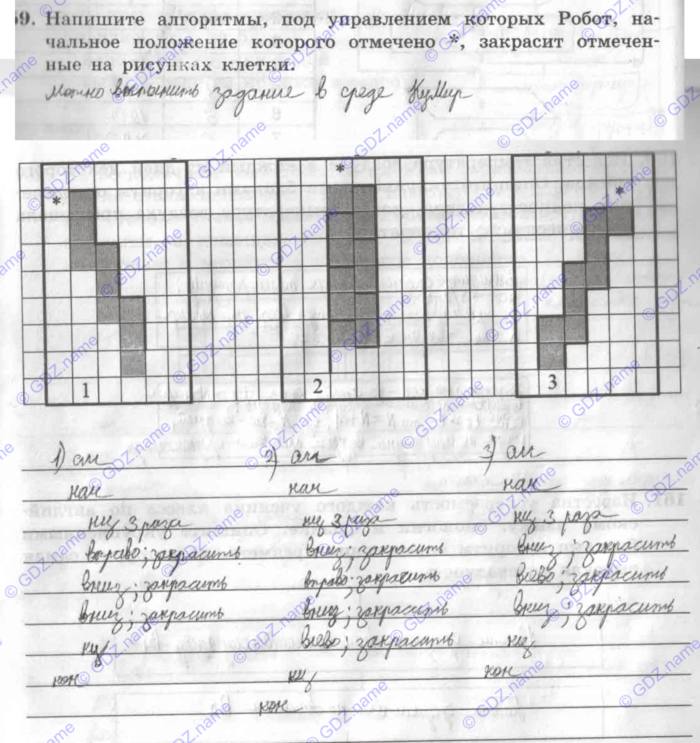 59. Напишите алгоритмы, под управлением которых Робот, на-
чальное положение которого отмечено *, закрасит отмечен-
ные на рисунках клетки.
можно выполнить задание в среде КуМир
*
*
*
1
2
3
1) алг
нач
нц 3 раза
вправо; закрасить
вниз; закрасить
вниз; закрасить
кц
кон
2) алг
нач
нц 3 раза
вниз; закрасить
вправо; закрасить
вниз; закрасить
влево; закрасить
кц
кон
3) алг
нач
нц 3 раза
вниз; закрасить
влево; закрасить
вниз; закрасить
кц
кон
© GDZ.name